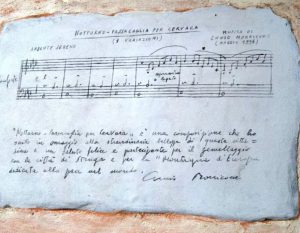 NOTTURNO-PASSACAGLIA PER CERVARA
(8 VARIAZIONI)
MUSICA DI
ENNIO MORRICONE
(MAGGIO 1998)
ANDANTE SERENO
"Notturno-Passacaglia per Cervara", è una composizione che ho
in omaggio alla straordinaria bellezza di questa
e un saluto felice e partecipante per il gemellaggio
con la città di e per la "Montagna d'Europa"
dedicata alla pace nel mondo.
Ennio Morricone